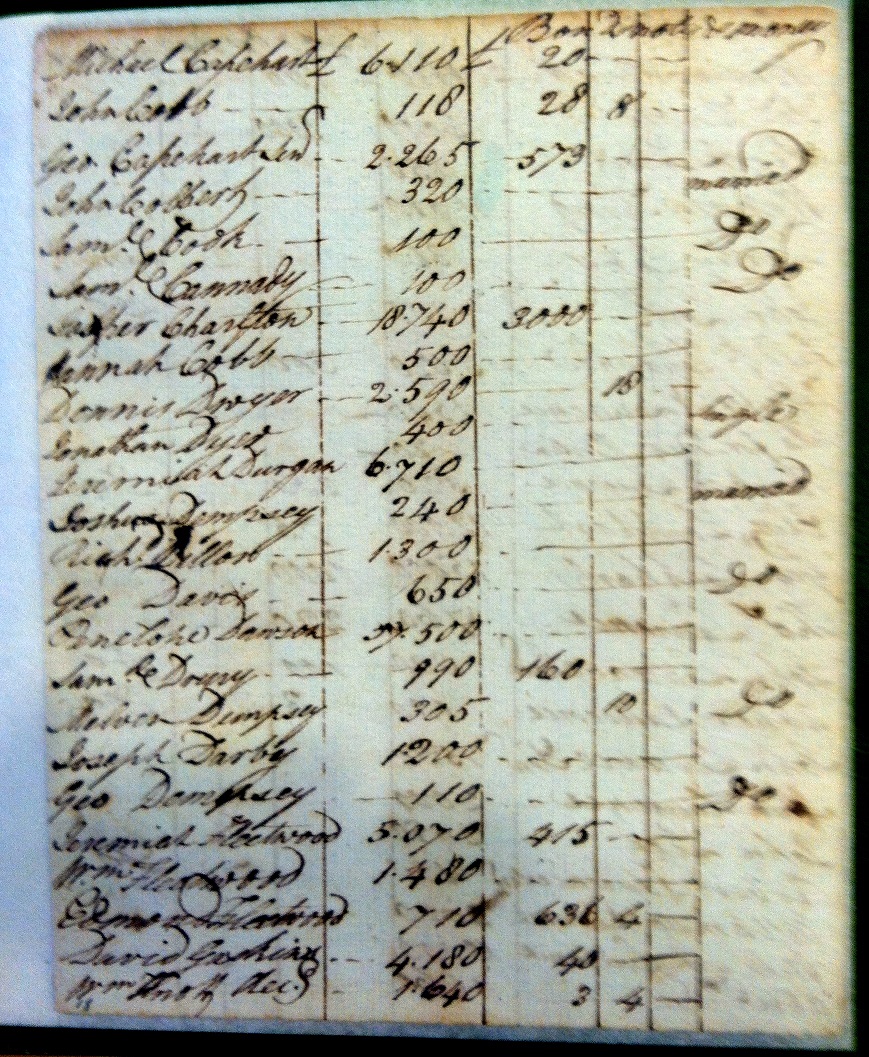 Bonds notes & money
Michael Capehart £ 6.110 £ 20
John Cobb 118 28 8
Geo Capehart Senr 2.265 573
John Colbert 320 married
Saml. Cook 100 Do
Saml. Cannady 100 Do
Jasper Charlton 18.740 3000
Hannah Cobb 500
Dennis Dwyer 2.590 18
Jonathan Dyer 400 single
Jeremiah Durgan 6.710
Joshua Dempsey 240 married
Richd. Dillon 1.300
Geo Davis 650 Do
Penelope Dawson 37.500
Saml. Drury 990 160
Melver Dempsey 305 10 Do
Joseph Darby 1200
Geo Dempsey 110 Do
Jeremiah Fleetwood 5.070 415
Wm. Fleetwood 1.480
Edmond Fleetwood 710 636 4
David Goskins 4.180 40
Wm Knott decd 1.640 3 4